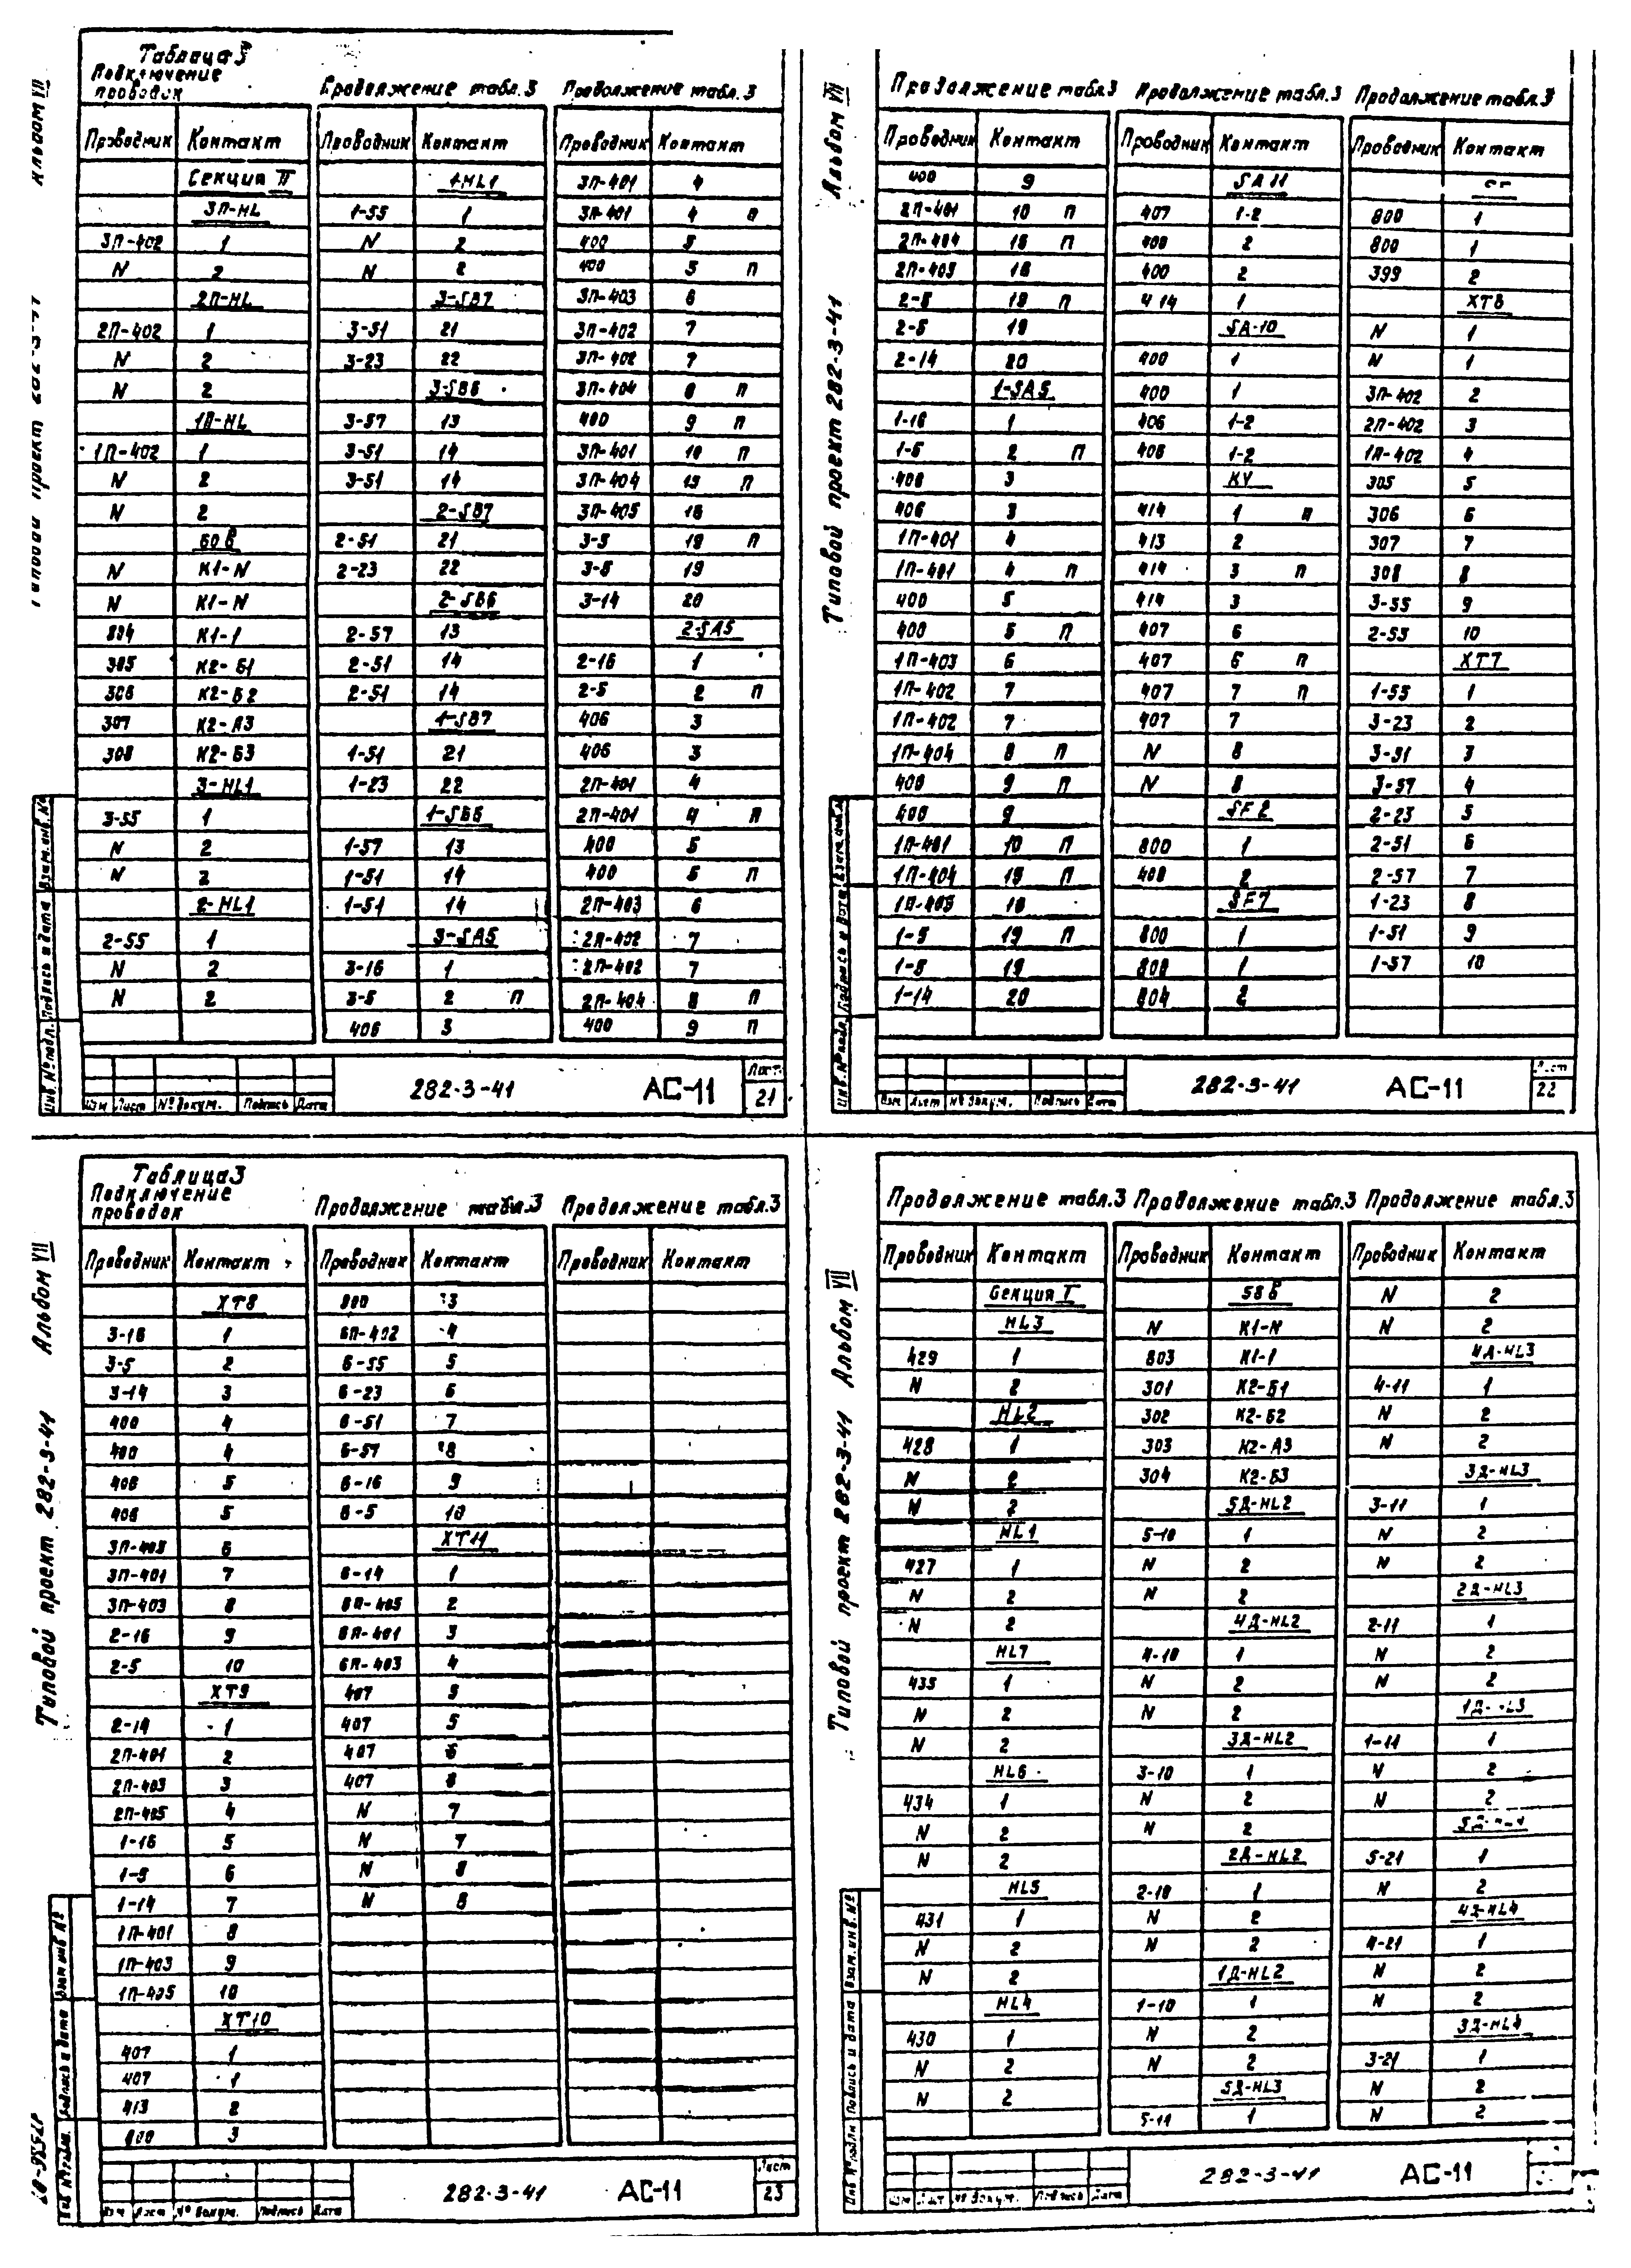 Таблица 3
Подключение
проводок
Проводник Контакт
Секция II
3П-HL
3П-402 1
N 2
2П-HL
2П-402 1
N 2
N 2
1П-HL
1П-402 1
N 2
N 2
60В
N К1-N
N К1-N
804 К1-1
305 К2-Б1
306 К2-Б2
307 К2-А3
308 К2-Б3
3-HL1
3-55 1
N 2
N 2
2-HL1
2-55 1
N 2
N 2
Продолжение табл.3
Проводник Контакт
1-HL1
1-55 1
N 2
N 2
3-SB7
3-51 21
3-23 22
3-SB6
3-57 13
3-51 14
3-51 14
2-SB7
2-51 21
2-23 22
2-SB6
2-57 13
2-51 14
2-51 14
1-SB7
1-51 21
1-23 22
1-SB6
1-57 13
1-51 14
1-51 14
3-SA5
3-16 1
3-5 2 П
406 3
Продолжение табл.3
Проводник Контакт
3П-401 4
3П-401 4 П
400 5
400 5 П
3П-403 6
3П-402 7
3П-402 7
3П-404 8 П
400 9 П
3П-401 10 П
3П-404 15 П
3П-405 16
3-5 19 П
3-5 19
3-14 20
2-SA5
2-16 1
2-5 2 П
406 3
406 3
2П-401 4
2П-401 4 П
400 5
400 5 П
2П-403 6
2П-402 7
2П-402 7
2П-404 8 П
400 9 П
282-3-41 АС-11
Лист
21
Изм Лист № докум. Подпись Дата
Альбом VII
Типовой проект 282-3-41
Инв.№ подл. Подпись и дата Взам.инв.№
Продолжение табл.3
Проводник Контакт
400 9
2П-401 10 П
2П-404 15 П
2П-405 16
2-5 19 П
2-5 19
2-14 20
1-SA5
1-16 1
1-5 2 П
406 3
406 3
1П-401 4
1П-401 4 П
400 5
400 5 П
1П-403 6
1П-402 7
1П-402 7
1П-404 8 П
400 9 П
400 9
1П-401 10 П
1П-404 15 П
1П-405 16
1-5 19 П
1-5 19
1-14 20
Продолжение табл.3
Проводник Контакт
SA11
407 1-2
400 2
400 2
414 1
SA-10
400 1
400 1
406 1-2
406 1-2
KV
414 1 П
413 2
414 3 П
414 3
407 6
407 6 П
407 7 П
407 7
N 8
N 8
SF2
800 1
400 2
SF7
800 1
800 1
804 2
Продолжение табл.3
Проводник Контакт
800 1
800 1
399 2
XT6
N 1
N 1
3П-402 2
2П-402 3
1П-402 4
305 5
306 6
307 7
308 8
3-55 9
2-55 10
XT7
1-55 1
3-23 2
3-51 3
3-57 4
2-23 5
2-51 6
2-57 7
1-23 8
1-51 9
1-57 10
282-3-41 АС-11
Лист
22
Изм Лист № докум. Подпись Дата
Альбом VII
Типовой проект 282-3-41
Инв.№ подл. Подпись и дата Взам.инв.№
Таблица 3
Подключение
проводок
Проводник Контакт
XT8
3-16 1
3-5 2
3-14 3
400 4
400 4
406 5
406 5
3П-405 6
3П-401 7
3П-403 8
2-16 9
2-5 10
XT9
2-14 1
2П-401 2
2П-403 3
2П-405 4
1-16 5
1-5 6
1-14 7
1П-401 8
1П-403 9
1П-405 10
XT10
407 1
407 1
413 2
800 3
Продолжение табл.3
Проводник Контакт
800 3
6П-402 4
6-55 5
6-23 6
6-51 7
6-57 8
6-16 9
6-5 10
XT11
6-14 1
6П-405 2
6П-401 3
6П-403 4
407 5
407 5
407 6
407 6
N 7
N 7
N 8
N 8
Продолжение табл.3
Проводник Контакт
282-3-41 АС-11
Лист
23
Изм Лист № докум. Подпись Дата
Альбом VII
Типовой проект 282-3-41
Инв.№ подл. Подпись и дата Взам.инв.№
Продолжение табл.3
Проводник Контакт
Секция I
HL3
429 1
N 2
HL2
428 1
N 2
N 2
HL1
427 1
N 2
N 2
HL7
435 1
N 2
N 2
HL6
434 1
N 2
N 2
HL5
431 1
N 2
N 2
HL4
430 1
N 2
N 2
Продолжение табл.3
Проводник Контакт
58В
N К1-N
803 К1-1
301 К2-Б1
302 К2-Б2
303 К2-А3
304 К2-Б3
5Д-HL2
5-10 1
N 2
N 2
4Д-HL2
4-10 1
N 2
N 2
3Д-HL2
3-10 1
N 2
N 2
2Д-HL2
2-10 1
N 2
N 2
1Д-HL2
1-10 1
N 2
N 2
5Д-HL3
5-11 1
Продолжение табл.3
Проводник Контакт
N 2
N 2
4Д-HL3
4-11 1
N 2
N 2
3Д-HL3
3-11 1
N 2
N 2
2Д-HL3
2-11 1
N 2
N 2
1Д-HL3
1-11 1
N 2
N 2
5-21 1
N 2
4Д-HL4
4-21 1
N 2
N 2
3Д-HL4
3-21 1
N 2
N 2
282-3-41 АС-11
Изм Лист № докум. Подпись Дата
Альбом VII
Типовой проект 282-3-41
Инв.№ подл. Подпись и дата Взам.инв.№